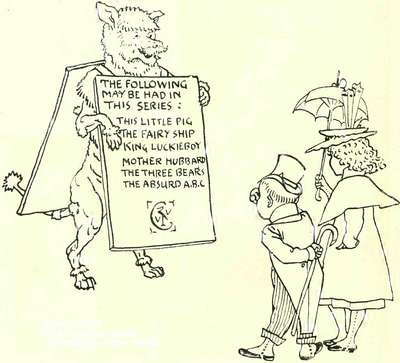 THE FOLLOWING
MAY BE HAD IN
THIS SERIES :
THIS LITTLE PIG
THE FAIRY SHIP
KING LUCKIEBOY
MOTHER HUBBARD
THE THREE BEARS
THE ABSURD A.B.C